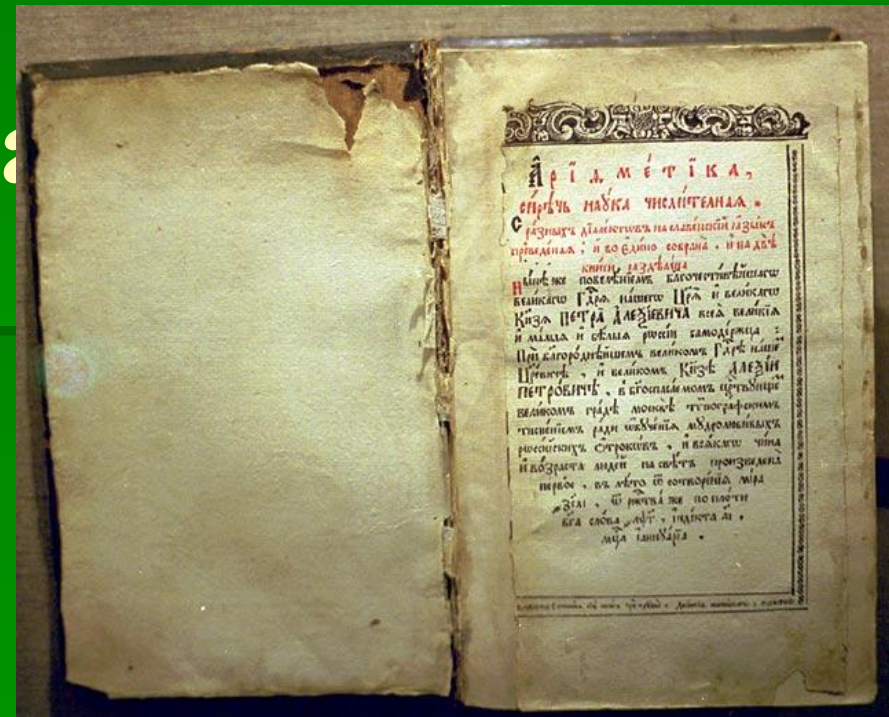 А҆ріѳме́тїка,
сирѣ́чь наꙋ́ка числи́телнаѧ.
С ра́зныхъ дїале́ктѡвъ на славе́нскїй ꙗ҆зы́къ
преведе́наѧ, и҆ во є҆ди́но собрана̀, и҆ на двѣ̀
кни̑ги раздѣле́на
Ны́нѣ же повелѣ́нїемъ благочести́вѣйшагѡ
вели́кагѡ Гдⷭ҇рѧ на́шегѡ Црѧ̀ и҆ вели́кагѡ
Кнⷤ҇зѧ ПЕТРА̀ А҆ЛЕѮІ́ЕВИЧА всеѧ̀ вели́кїѧ
и҆ ма́лыѧ и҆ бѣ́лыѧ рѡссі́и самоде́ржца:
Прѝ бл҃горо́днѣйшемъ вели́комъ Гдⷭ҇рѣ на́шемъ
Цр҃е́вичѣ, и҆ вели́комъ Кн҃зѣ А҆ЛЕѮІ́И
ПЕТРО́ВИЧѢ, в бг҃оспаса́емомъ црⷭ҇твꙋющемъ
вели́комъ гра́дѣ москвѣ̀ тѷпогра́фскимъ
тисне́нїемъ ра́ди ѡ҆бꙋче́нїѧ мꙋдролюби́выхъ
рѡссі́йскихъ ѻ҆́трокѡвъ, и҆ всѧ́кагѡ чи́на
и҆ во́зраста люде́й на свѣ́тъ произведена̀
пе́рвое, въ лѣ́то ѿ сотворе́нїѧ мі́ра
҂зса҃і, ѿ ржⷭ҇тва̀ же по пло́ти
бг҃а сло́ва ҂аѱг҃, і҆нді́кта а҃і.
мцⷭ҇а і҆аннꙋа́рїа.